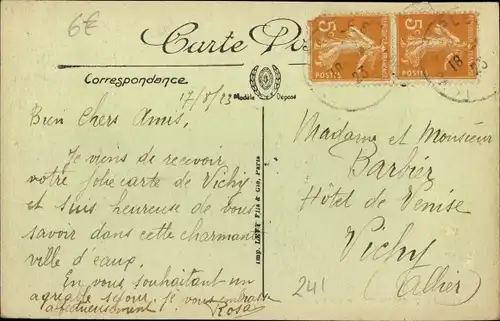 6€
Carte Pos
Correspondance
Modèle Déposé
5c
POSTES
5c
POSTES
18
23
17/8/23
Bien Chers Amis,
Je viens de recevoir
votre jolie carte de Vichy
et suis heureuse de vous
savoir dans cette charmante
ville d'eaux.
En vous souhaitant un
agréable séjour, je vous embrasse
affectueusement Rosa
Imp. LEVY Fils & Cie, Paris
Madame et Monsieur
Barbier
Hôtel de Venise
Vichy
(Allier)
241